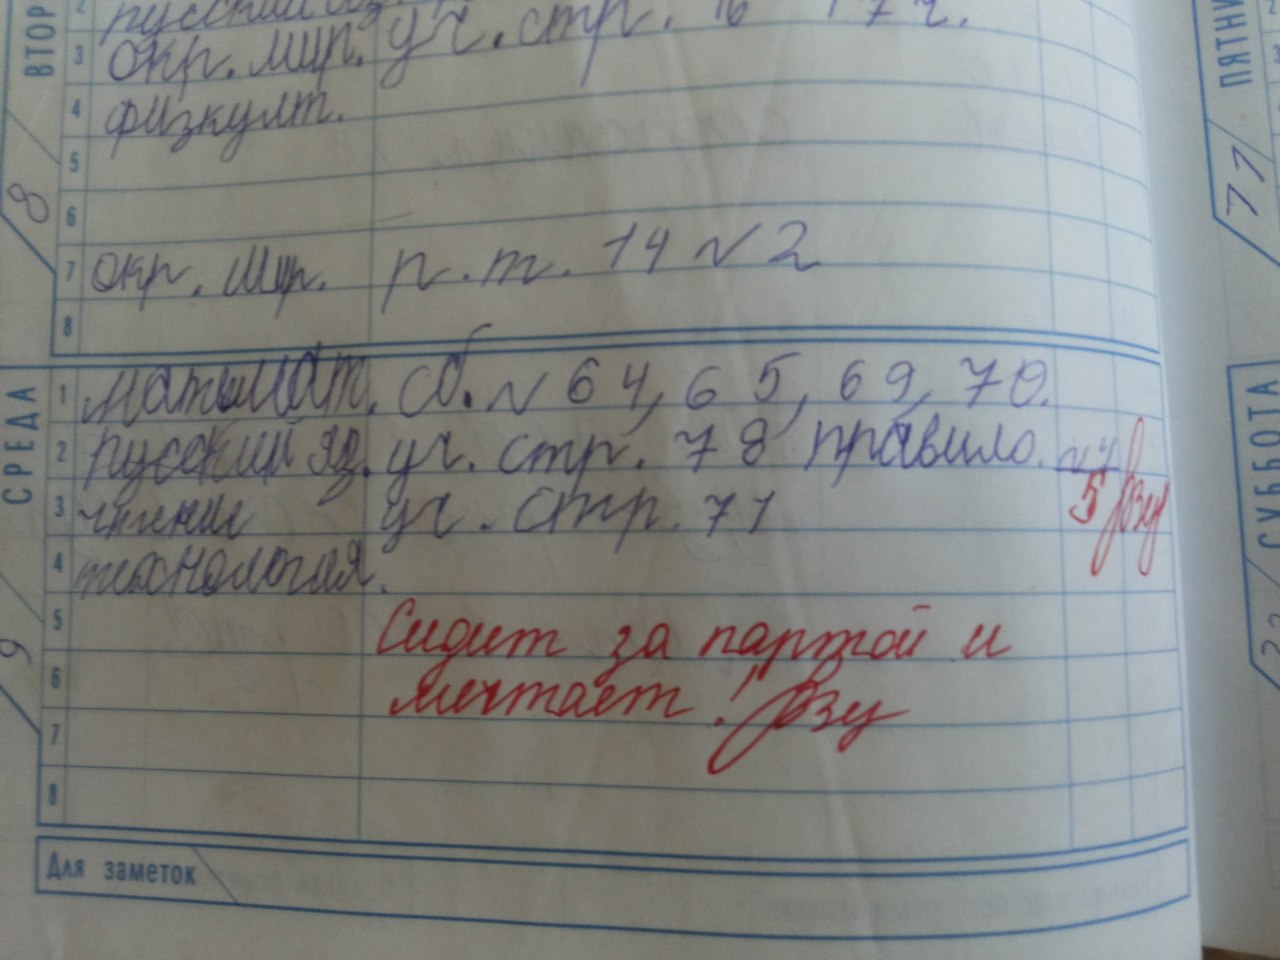 ВТОР
2 русский яз.
3 окр. мир. уч. стр. 16 17 ч.
4 физкулт.
5
6
7 окр. мир. р. т. 14 № 2
8
8
СРЕДА
1 матымат. сб. № 64, 65, 69, 70.
2 русский яз. уч. стр. 78 правило. №4
3 чтение уч. стр. 71 5
4 технология.
5 Сидит за партой и
6 мечтает!
7
8
9
Для заметок
ПЯТНИ
11
СУББОТА